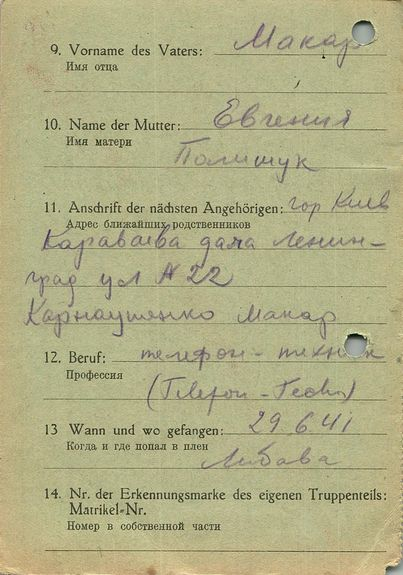 9. Vorname des Vaters: Макар
Имя отца
10. Name der Mutter: Евгения
Имя матери
Полищук
11. Anschrift der nächsten Angehörigen: гор Киев
Адрес ближайших родственников
Караваева дача Ленин-
град ул № 22
Карнаушенко Макар
12. Beruf: телефон-техник.
Профессия
(Telefon-Techn)
13 Wann und wo gefangen: 29.6.41
Когда и где попал в плен
Либава
14. Nr. der Erkennungsmarke des eigenen Truppenteils:
Matrikel-Nr.
Номер в собственной части